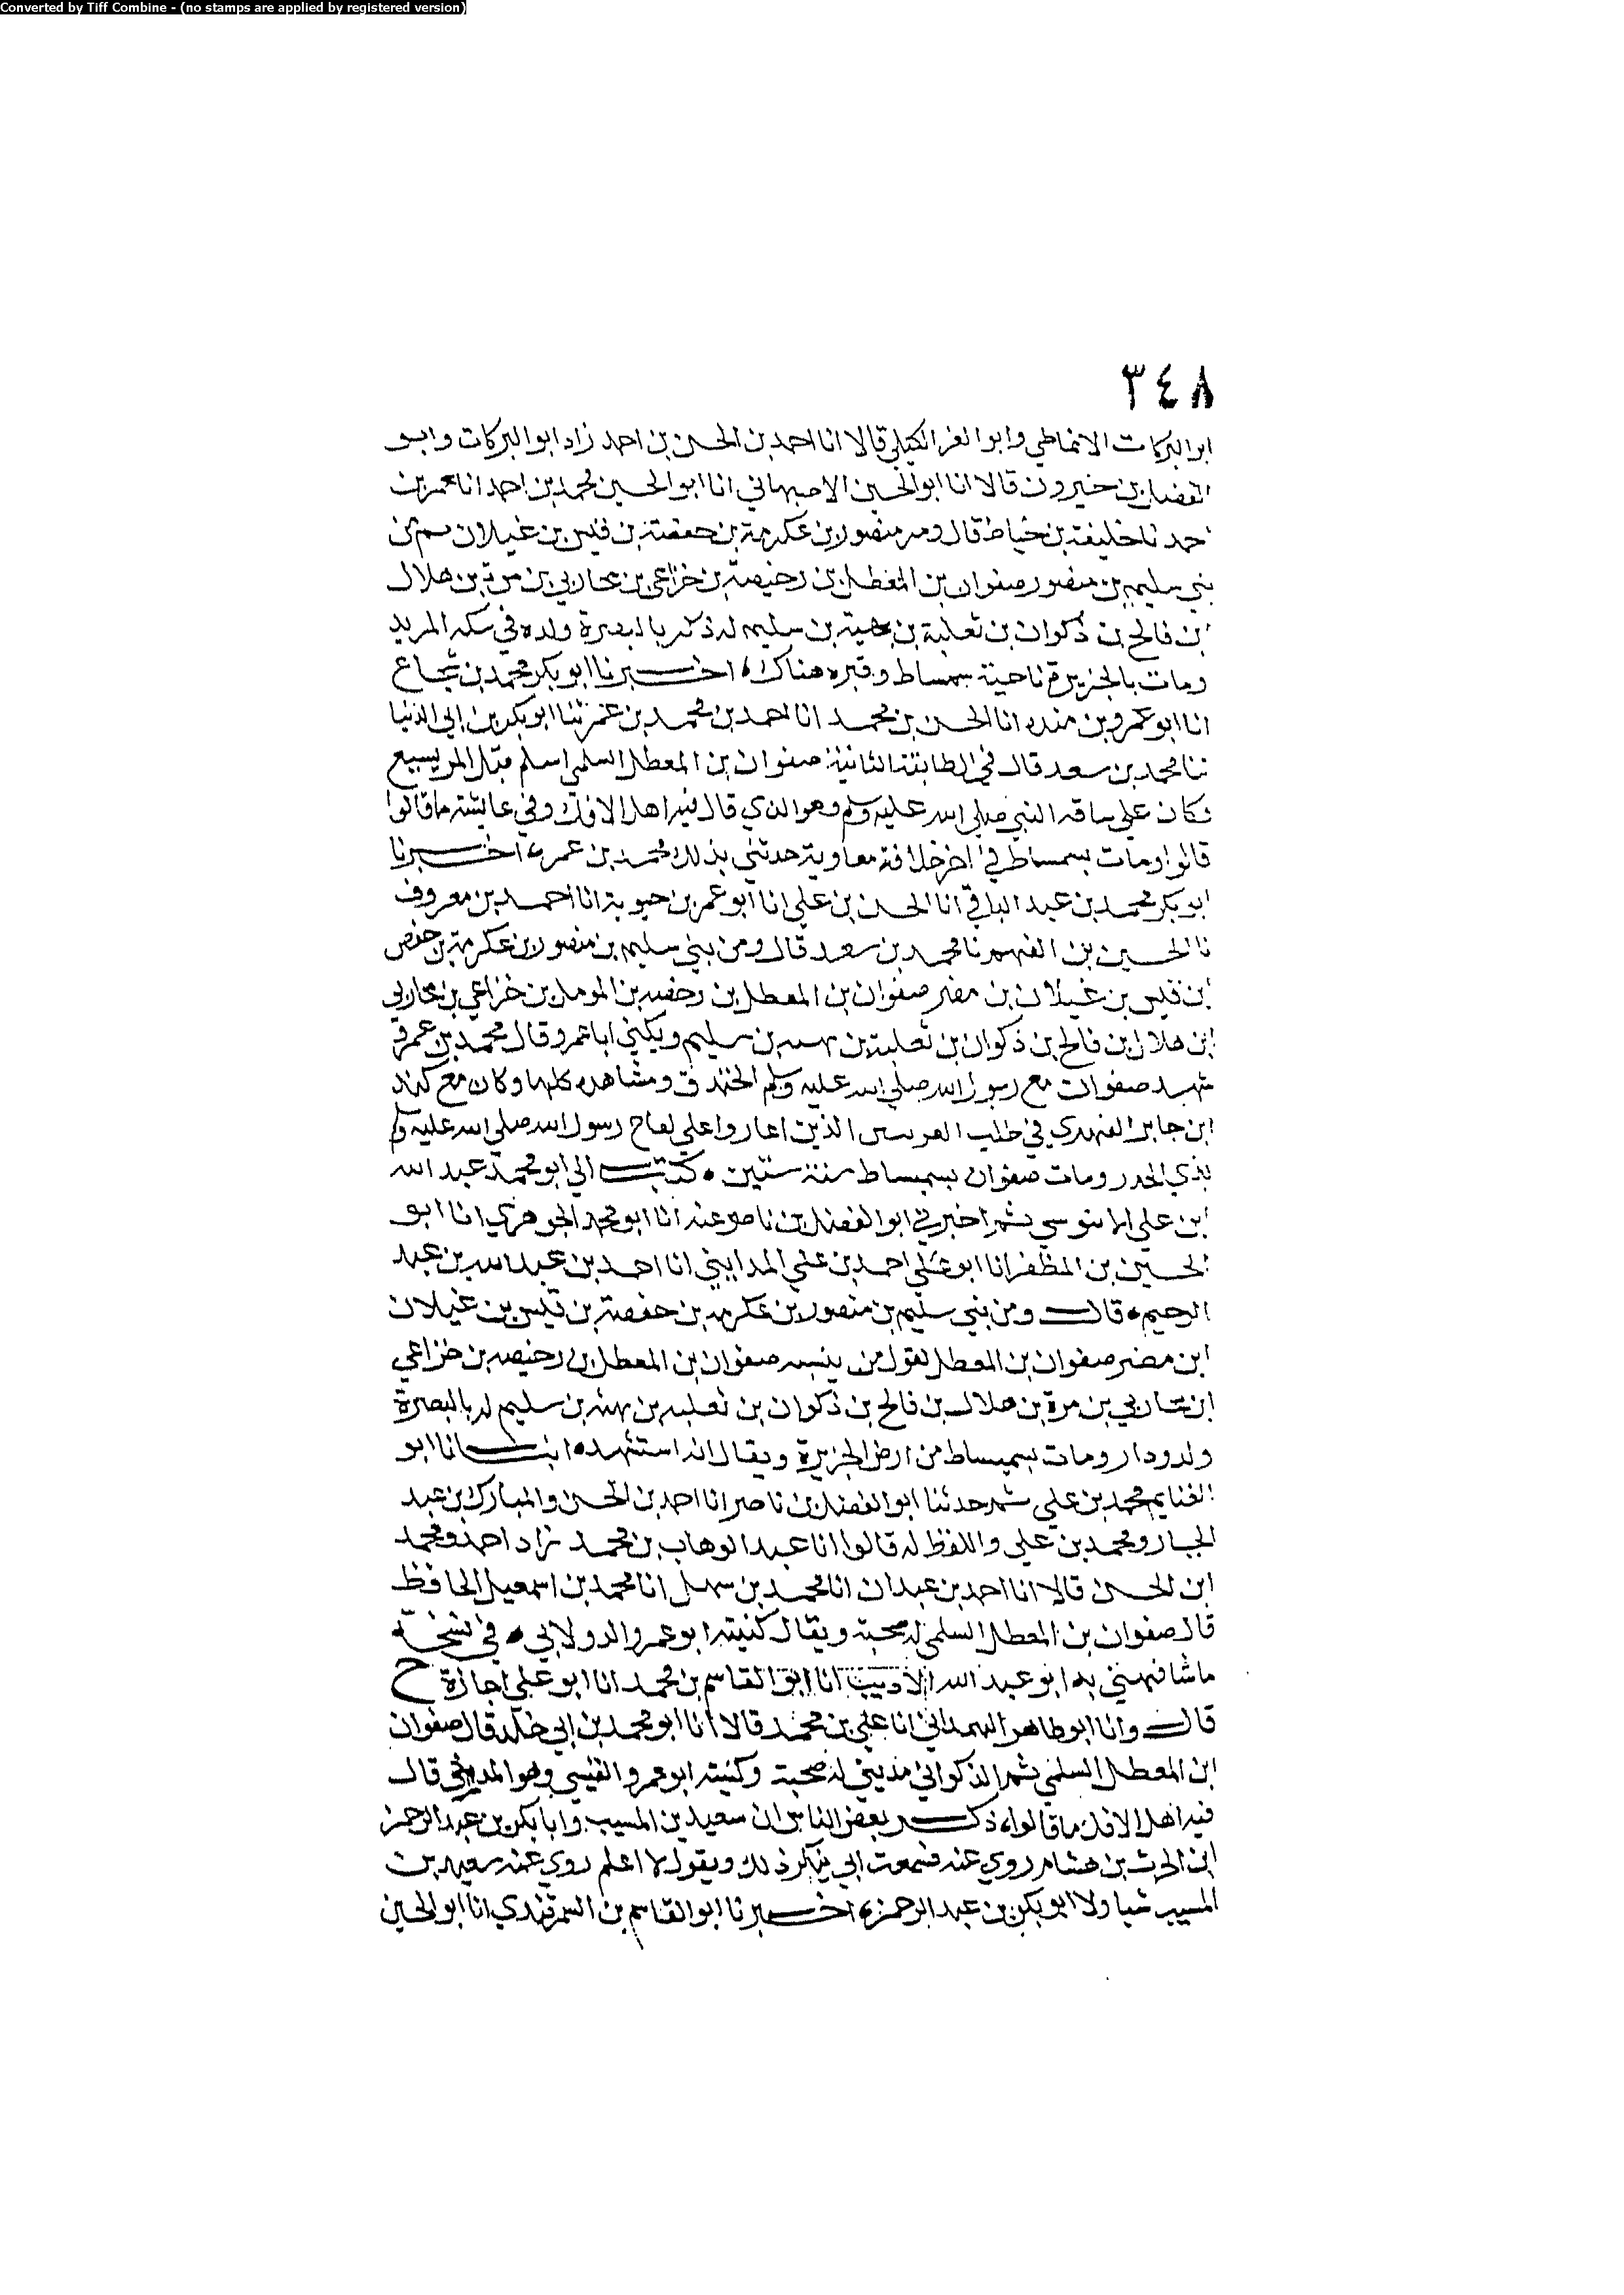 Converted by Tiff Combine - (no stamps are applied by registered version)
٣٤٨
ابو البركات الانماطي وابو العز الكيلي قالا انا احمد بن الحسن بن احمد زاد ابو البركات وابو
الفضل بن خيرون قالا انا ابو الحسين الاصبهاني انا ابو الحسين محمد بن احمد انا عمر بن
احمد نا خليفة بن خياط قال ومن منصور بن عكرمة بن حفصة بن قيس بن غيلان ثم من
بني سليم بن منصور صفوان بن المعطل بن رحيضة بن خزاعي بن محاربي بن مرة بن هلال
ابن فالح بن ذكوان بن ثعلبة بن بهية بن سليم له ذكر بالبصرة ولده في سكة المربد
ومات بالجزيرة ناحية سمساط وقبره هناك اخبرنا ابو بكر محمد بن شجاع
انا ابو عمرو بن منده انا الحسن بن محمد انا احمد بن محمد بن عمر ثنا ابو بكر بن ابي الدنيا
ثنا محمد بن سعد قال في الطبقة الثانية صفوان بن المعطل السلمي اسلم قبل المريسيع
وكان على ساقة النبي صلى الله عليه وسلم وهو الذي قال فيه اهل الافك وفي عايشة ما قالوا
قالوا ومات بسمساط في اخر خلافة معاوية حدثني بذلك محمد بن عمر اخبرنا
ابو بكر محمد بن عبد الباقي انا الحسن بن علي انا ابو عمر بن حيوية انا احمد بن معروف
نا الحسين بن الفهم نا محمد بن سعد قال ومن بني سليم بن منصور بن عكرمة بن حفص
ابن قيس بن غيلان بن مضر صفوان بن المعطل بن رحضه بن المومل بن خزاعي بن محاربي
ابن هلال بن فالح بن ذكوان بن ثعلبة بن بهسه بن سليم ويكنى ابا عمرو قال محمد بن عمر
شهد صفوان مع رسول الله صلى الله عليه وسلم الخندق ومشاهده كلها وكان مع كرز
ابن جابر الفهري في طلب العرنيين الذين اغاروا على لقاح رسول الله صلى الله عليه وسلم
بذي الجدر ومات صفوان بسميساط سنة ستين كتب الي ابو محمد عبد الله
ابن علي الابنوسي ثم اخبرني ابو الفضل بن ناصر عنه انا ابو محمد الجوهري انا ابو
الحسين بن المظفر انا ابو علي احمد بن علي المدايني انا احمد بن عبد الله بن عبد
الرحيم قال ومن بني سليم بن منصور بن عكرمه بن حفصة بن قيس بن غيلان
ابن مضر صفوان بن المعطل لقول من ينسبه صفوان بن المعطل بن رحيضه بن خزاعي
ابن محاربي بن مرة بن هلال بن فالح بن ذكوان بن ثعلبه بن بهثه بن سليم له بالبصرة
ولد ودار ومات بسميساط من ارض الجزيرة ويقال انه استشهد انبانا ابو
الغنايم محمد بن علي ثم حدثنا ابو الفضل بن ناصر انا احمد بن الحسن والمبارك بن عبد
الجبار ومحمد بن علي واللفظ له قالوا انا عبد الوهاب بن محمد زاد احمد ومحمد
ابن الحسن قالا انا احمد بن عبدان انا محمد بن سهل انا محمد بن اسمعيل الحافظ
قال صفوان بن المعطل السلمي له صحبة ويقال كنيته ابو عمرو الدولابي في نسخة
ما شافهني به ابو عبد الله الاديب انا ابو القاسم بن محمد انا ابو علي اجازة ح
قال وانا ابو طاهر الهمداني انا علي بن محمد قالا انا ابو محمد بن ابي خالد قال صفوان
ابن المعطل السلمي ثم الذكواني مديني له صحبة وكنيته ابو عمرو القيسي وهو قال
فيه اهل الافك ما قالوا ذكر بعض الناس ان سعيد بن المسيب وابا بكر بن عبد الرحمن
ابن الحرث بن هشام روي عنه فسمعت ابي ينكر ذلك ويقول لا اعلم روي عنه سعيد بن
المسيب شيا ولا ابو بكر بن عبد الرحمن اخبرنا ابو القاسم بن السمرقندي انا ابو الحسين